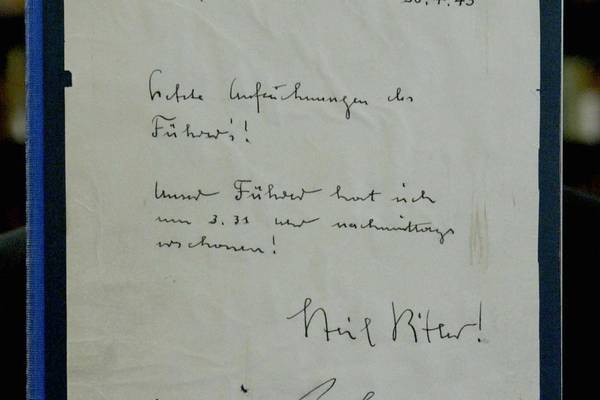 30.4.45
Letzte Aufzeichnungen des
Führers!
Unser Führer hat sich
um 3.31 Uhr nachmittags
erschossen!
Heil Hitler!